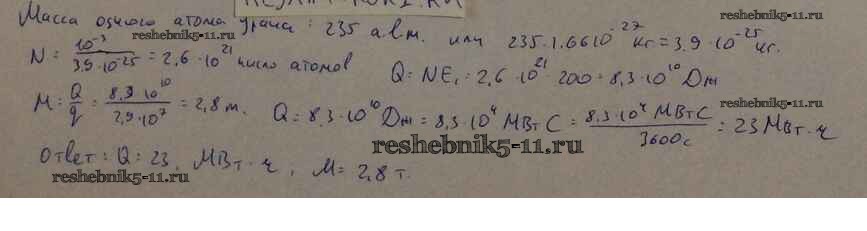 Масса одного атома урана: 235 а.е.м. или 235·1.66·10⁻²⁷ кг = 3.9·10⁻²⁵ кг.
reshebnik5-11.ru
N = 10⁻³ / 3.9·10⁻²⁵ = 2,6·10²¹ число атомов
Q = NE₁ = 2,6·10²¹·200 = 8,3·10¹⁰ Дж
M = Q/q = 8,3·10¹⁰ / 2,9·10⁷ = 2,8 т.
reshebnik5-11.ru
Q = 8,3·10¹⁰ Дж = 8,3·10⁴ МВт С = 8,3·10⁴ МВт С / 3600 с = 23 МВт·ч
reshebnik5-11.ru
Ответ: Q = 23, МВт·ч, M = 2,8 т.
reshebnik5-11.ru